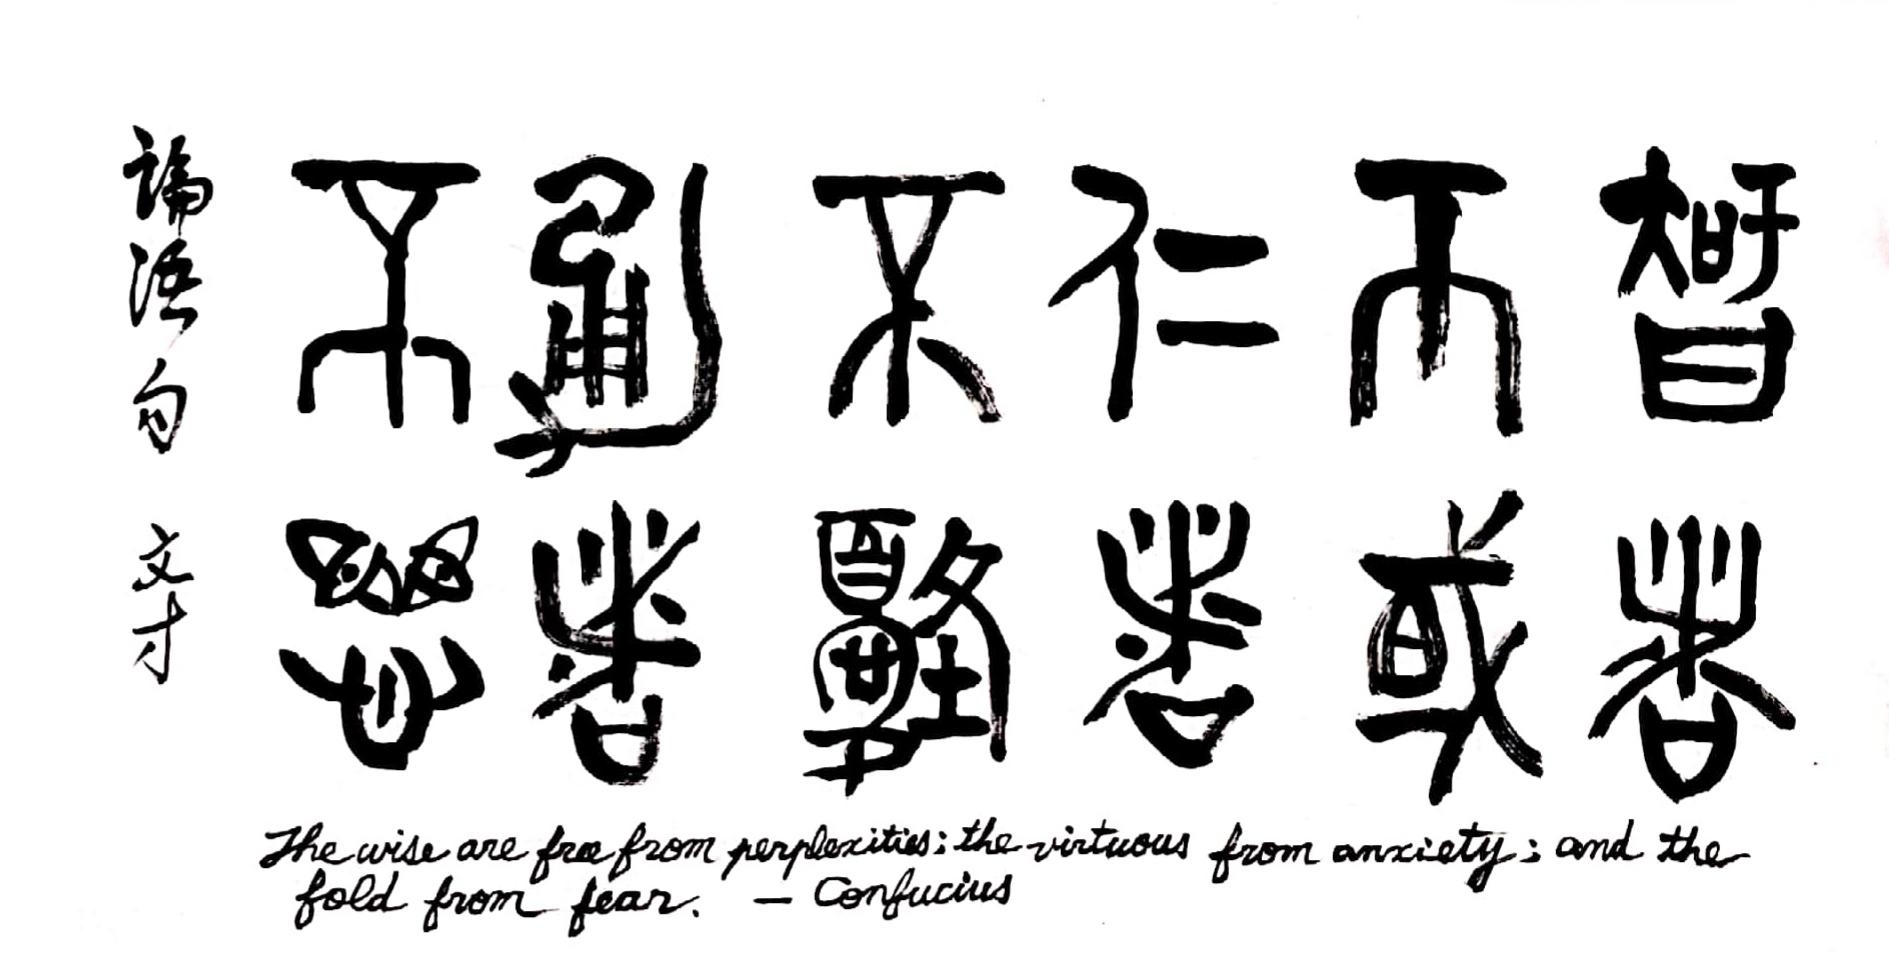 智者
不或
仁者
不憂
勇者
不懼
論語句 文才
The wise are free from perplexities; the virtuous from anxiety; and the
fold from fear. — Confucius